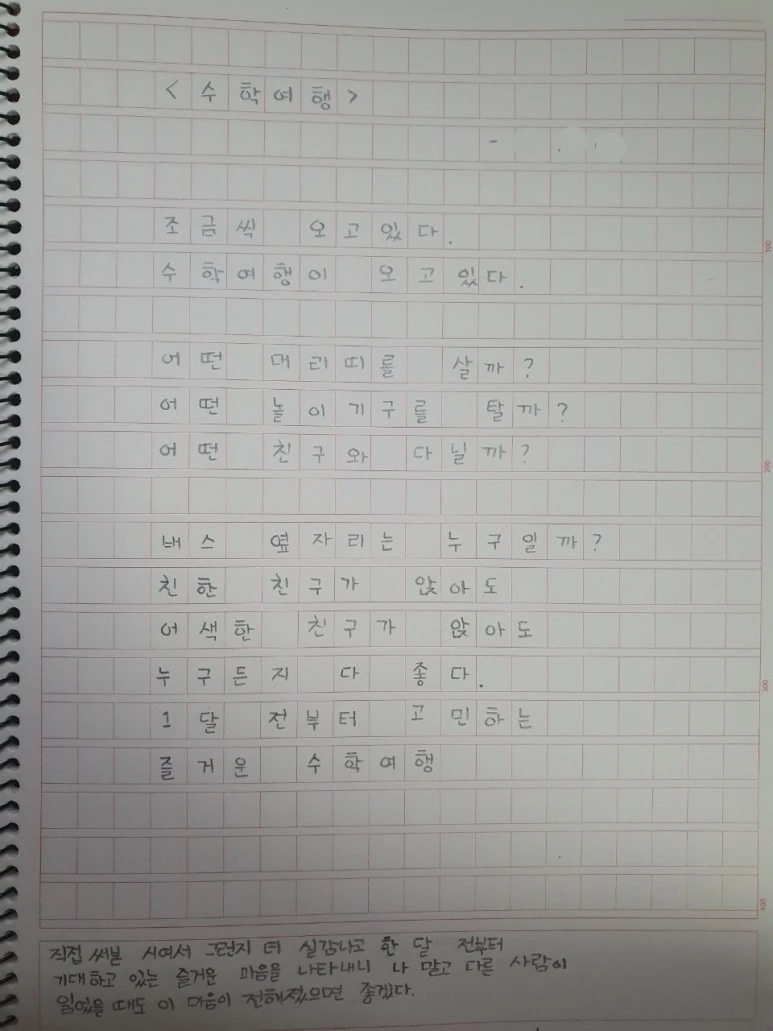 <수학여행>
조금씩 오고있다.
수학여행이 오고있다.
어떤 머리띠를 살까?
어떤 놀이기구를 탈까?
어떤 친구와 다닐까?
버스 옆자리는 누구일까?
친한 친구가 앉아도
어색한 친구가 앉아도
누구든지 다 좋다.
1달 전부터 고민하는
즐거운 수학여행
직접 써본 시여서 그런지 더 실감나고 한 달 전부터
기대하고 있는 즐거운 마음을 나타내니 나 말고 다른 사람이
읽었을 때도 이 마음이 전해졌으면 좋겠다.